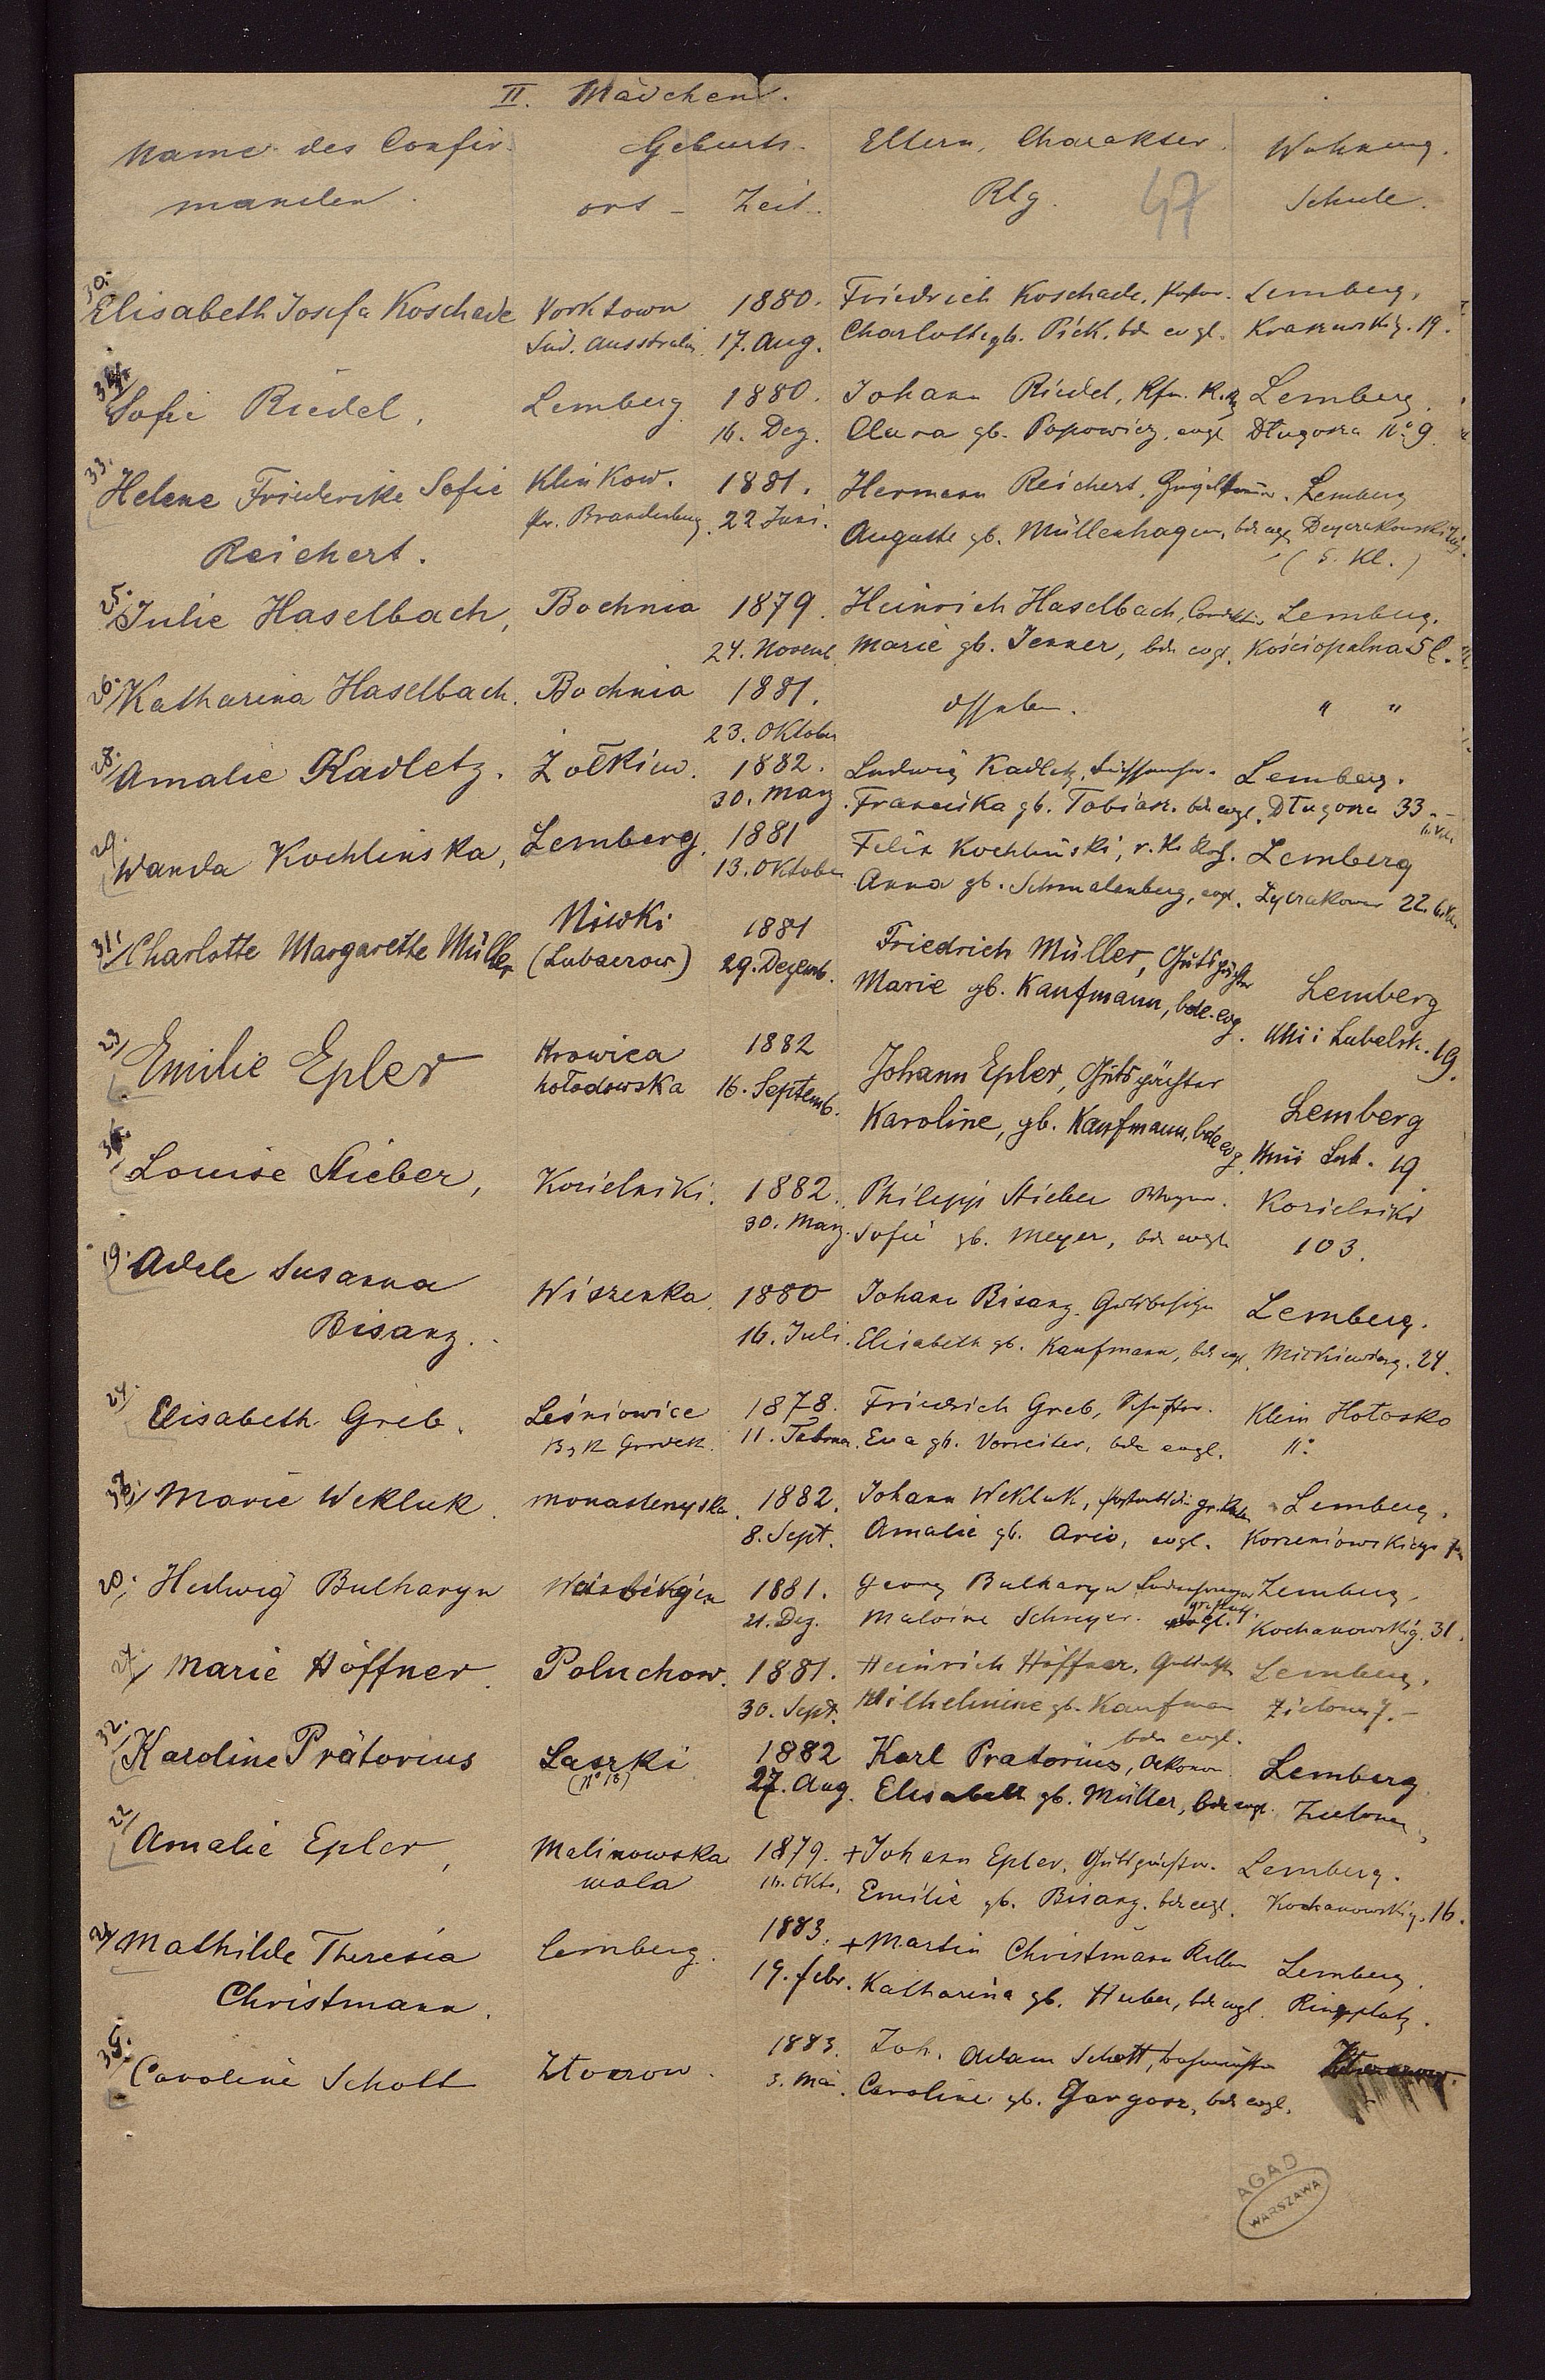 II. Mädchen.
Name des Confir- Geburts- Eltern, Charakter. Wohnung.
manden. ort - Zeit. Rlg. 47 Schule.
30. Elisabeth Josefa Koschade Yorktown 1880. Friedrich Koschade, Lemberg,
Süd. Australien 17. Aug. Charlotte gb. Pick, bde evgl. Kraszewskig. 19.
34. Sofie Riedel, Lemberg 1880. Johann Riedel, Kfm. Lemberg.
16. Dez. Clara gb. Popowicz, evgl Długosza No 9.
33. Helene Friederike Sofie Klinkow. 1881. Hermann Reichert, Lemberg
Reichert. Pr. Brandenburg 22 Juni. Auguste gb. Müllenhagen, bde evgl
(5. Kl.)
25. Julie Haselbach, Bochnia 1879. Heinrich Haselbach, Lemberg.
24. Novemb. Marie gb. Jenner, bde evgl.
26. Katharina Haselbach. Bochnia 1881. " "
23. Oktober
28. Amalie Kadletz. Żołkiew. 1882. Ludwig Kadletz, Lemberg.
30. März. Franciska gb. Tobiasz. bde evgl. Długosza 33.
29. Wanda Kochlinska, Lemberg. 1881 Felix Kochlinski, r. K. Lemberg
13. Oktober Anna gb. Schmalenberg, evgl. Łyczakower 22.
31. Charlotte Margarethe Müller Niwki 1881 Friedrich Müller, Gutspächter Lemberg
(Lubaczow) 29. Dezemb. Marie gb. Kaufmann, bde. evg. Unii Lubelsk. 19.
23. Emilie Epler Krowica 1882 Johann Epler, Gutspächter Lemberg
hołodowska 16. Septemb. Karoline, gb. Kaufmann, bde evg. Unii Lub. 19
36. Louise Stieber, Kozielniki. 1882. Philipp Stieber Kozielniki
30. März. Sofie gb. Meyer, bde evgl 103.
19. Adele Susanna Wiszenka 1880 Johann Bisanz, Gutsbesitzer Lemberg.
Bisanz. 16. Juli. Elisabeth gb. Kaufmann, bde evgl. Mickiewiczg. 24.
24. Elisabeth Greb. Leśniowice 1878. Friedrich Greb, Klein Hołosko
Bzk Grodek. 11. Februar. Eva gb. Vorreiter, bde evgl.
37. Marie Wekluk. Monasterzyska. 1882. Johann Wekluk, Lemberg.
8. Sept. Amalie gb. Ario, evgl. Korzeniowskiego
20. Hedwig Bulharyn 1881. Georg Bulharyn Lemberg,
21. Dez. Malvine Schreyer. Kochanowskig. 31.
27. Marie Höffner. Poluchow. 1881. Heinrich Höffner, Lemberg.
30. Sept. Wilhelmine gb. Kaufman Zielona 7.
bde evgl.
32. Karoline Prätorius Laszki 1882 Karl Prätorius, Oekonom Lemberg
(No 18) 27. Aug. Elisabeth gb. Müller, bde evgl. Zielona
22. Amalie Epler, Malinowska 1879. + Johann Epler, Gutspächter. Lemberg.
wola Emilie gb. Bisanz. bde evgl. Kochanowskig. 16.
21. Mathilde Theresia Lemberg. 1883. + Martin Christmann Lemberg.
Christmann. 19. febr. Katharina gb. Huber, bde evgl. Ringplatz.
35. Caroline Schott Ztoczow. 1883. Joh. Adam Schott,
3. Mai. Caroline gb. Gorgosz, bde evgl.
AGAD
WARSZAWA